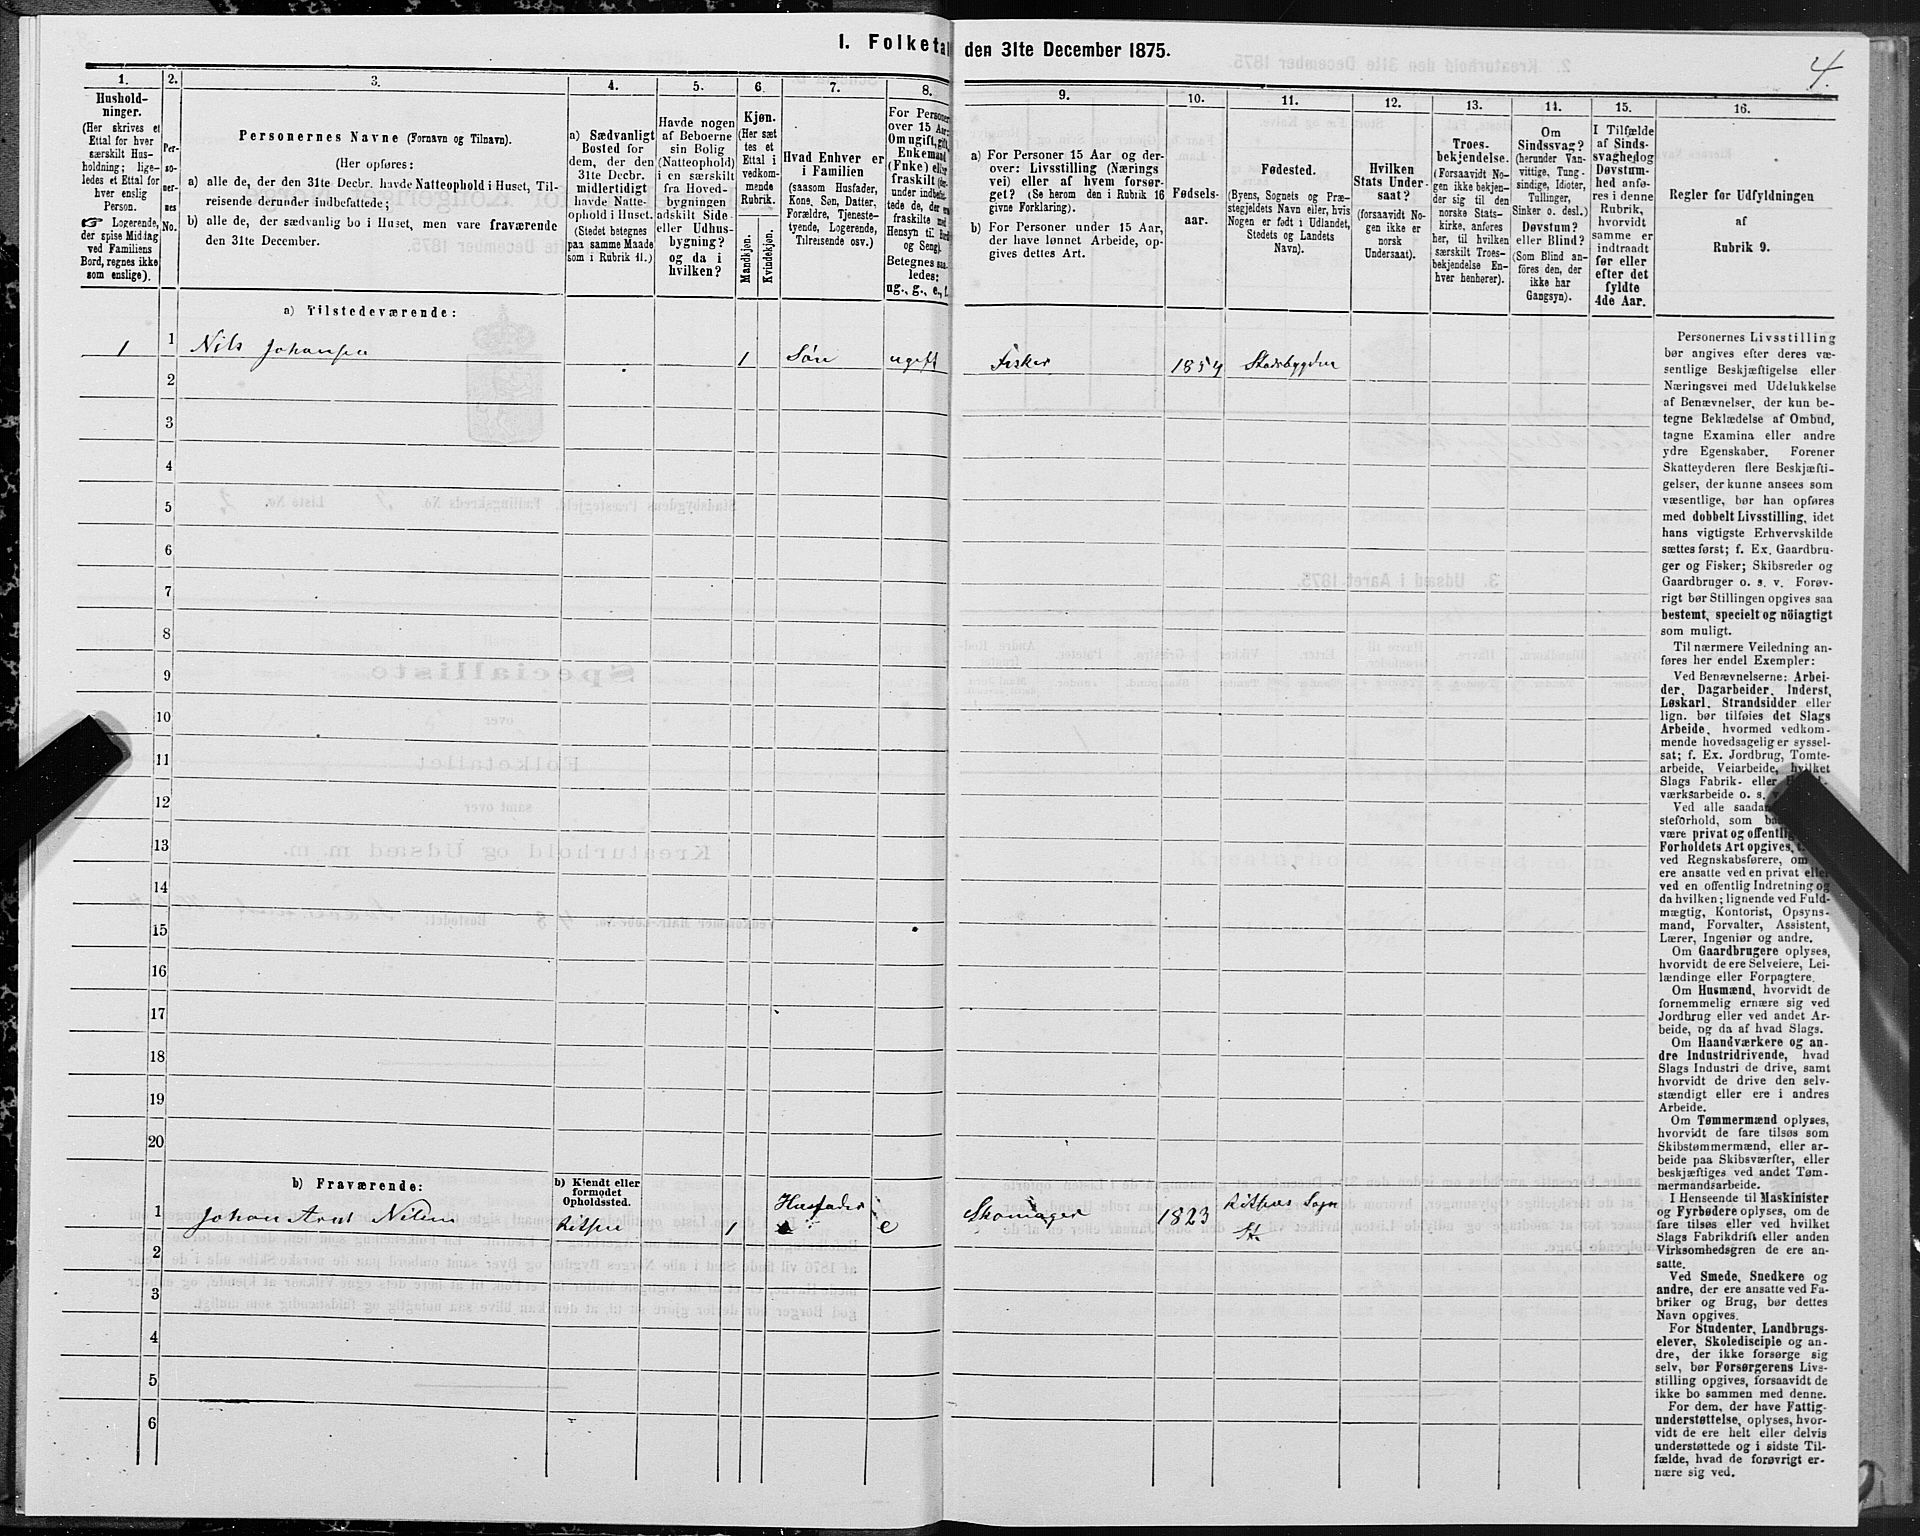 1. Folketal den 31te December 1875.
4.
1.
Hushold-
ninger.
(Her skrives et
Ettal for hver
særskilt Hus-
holdning; lige-
ledes et Ettal for
hver enslig
Person.
Logerende,
der spise Middag
ved Familiens
Bord, regnes ikke
som enslige).
2.
Per-
so-
ner-
nes
No.
3.
Personernes Navne (Fornavn og Tilnavn).
(Her opføres:
a) alle de, der den 31te Decbr. havde Natteophold i Huset, Til-
reisende derunder indbefattede;
b) alle de, der sædvanlig bo i Huset, men vare fraværende
den 31te December.
4.
a) Sædvanligt
Bosted for
dem, der den
31te Decbr.
midlertidigt
havde Natte-
ophold i Huset.
(Stedet betegnes
paa samme Maade
som i Rubrik 11.)
5.
Havde nogen
af Beboerne
sin Bolig
(Natteophold)
i en særskilt
fra Hoved-
bygningen
adskilt Side-
eller Udhus-
bygning?
og da i
hvilken?
6.
Kjøn.
(Her sæt
tes et
Ettal i
vedkom-
mende
Rubrik.
Mandkjøn.
Kvindekjøn.
7.
Hvad Enhver er
i Familien
(saasom Husfader,
Kone, Søn, Datter,
Forældre, Tjeneste-
tyende, Logerende,
Tilreisende osv.)
8.
For Personer
over 15 Aar:
Om ugift, gift,
Enkemand
(Enke) eller
fraskilt
Betegnes saa-
ledes:
ug., g., e., f.
9.
a) For Personer 15 Aar og der-
over: Livsstilling (Nærings
vei) eller af hvem forsør-
get? (Se herom den i Rubrik 16
givne Forklaring).
b) For Personer under 15 Aar,
der have lønnet Arbeide, op-
gives dettes Art.
10.
Fødsels-
aar.
11.
Fødested.
(Byens, Sognets og Præ-
stegjeldets Navn eller, hvis
Nogen er født i Udlandet,
Stedets og Landets
Navn).
12.
Hvilken
Stats Under-
saat?
(forsaavidt No-
gen ikke er
norsk
Undersaat).
13.
Troes-
bekjendelse.
(Forsaavidt No-
gen ikke bekjen-
der sig til den
norske Stats-
kirke, anføres
her, til hvilken
særskilt Troes-
bekjendelse En-
hver henhører).
14.
Om
Sindssvag?
(herunder Van-
vittige, Tung-
sindige, Idioter,
Tullinger,
Sinker o. desl.)
Døvstum?
eller Blind?
(Som Blind an-
føres den, der
ikke har
Gangsyn).
15.
I Tilfælde
af Sinds-
svaghed og
Døvstum-
hed anfø-
res i denne
Rubrik,
hvorvidt
samme er
indtraadt
før eller
efter det
fyldte
4de Aar.
16.
Regler for Udfyldningen
af
Rubrik 9.
a) Tilstedeværende:
1 1 Nils Johansen 1 Søn ugift Fisker 1854 Stadsbygden
2
3
4
5
6
7
8
9
10
11
12
13
14
15
16
17
18
19
20
b) Fraværende:
b) Kjendt eller
formodet
Opholdssted.
1 Johan Arnt Nilsen Rissen 1 Husfader e Skomager 1823 Rissens Sogn
St.
2
3
4
5
6
Personernes Livsstilling
bør angives efter deres væ-
sentlige Beskjæftigelse eller
Næringsvei med Udelukkelse
af Benævnelser, der kun be-
tegne Beklædelse af Ombud,
tagne Examina eller andre
ydre Egenskaber. Forener
Skatteyderen flere Beskjæfti-
gelser, der kunne ansees som
væsentlige, bør han opføres
med dobbelt Livsstilling, idet
hans vigtigste Erhvervskilde
sættes først; f. Ex. Gaardbru-
ger og Fisker; Skibsreder og
Gaardbruger o. s. v. Forøv-
rigt bør Stillingen opgives saa
bestemt, specielt og nöiagtigt
som muligt.
Til nærmere Veiledning an-
føres her endel Exempler:
Ved Benævnelserne: Arbei-
der, Dagarbeider, Inderst,
Løskarl, Strandsidder eller
lign. bør tilføies det Slags
Arbeide, hvormed vedkom-
mende hovedsagelig er syssel-
sat; f. Ex. Jordbrug, Tomte-
arbeide, Veiarbeide, hvilket
Slags Fabrik- eller
værksarbeide o. s. v.
Ved alle
steforhold, som
være privat og offentlig,
Forholdets Art opgives,
ved Regnskabsførere, om
ere ansatte ved en privat eller
ved en offentlig Indretning og
da hvilken; lignende ved Fuld-
mægtig, Kontorist, Opsyns-
mand, Forvalter, Assistent,
Lærer, Ingeniør og andre.
Om Gaardbrugere oplyses,
hvorvidt de ere Selveiere, Lei-
lændinge eller Forpagtere.
Om Husmænd, hvorvidt de
fornemmelig ernære sig ved
Jordbrug eller ved andet Ar-
beide, og da af hvad Slags.
Om Haandværkere og an-
dre Industridrivende, hvad
Slags Industri de drive, samt
hvorvidt de drive den selv-
stændigt eller ere i andres
Arbeide.
Om Tømmermænd oplyses,
hvorvidt de fare tilsøs som
Skibstømmermænd, eller ar-
beide paa Skibsværfter, eller
beskjæftiges ved andet Tøm-
mermandsarbeide.
I Henseende til Maskinister
og Fyrbødere oplyses, om de
fare tilsøs eller ved hvilket
Slags Fabrikdrift eller anden
Virksomhedsgren de ere an-
satte.
Ved Smede, Snedkere og
andre, der ere ansatte ved Fa-
briker og Brug, bør dettes
Navn opgives.
For Studenter, Landbrugs-
elever, Skoledisciple og an-
dre, der ikke forsørge sig
selv, bør Forsørgerens Livs-
stilling opgives, forsaavidt de
ikke bo sammen med denne.
For dem, der have Fattig-
understøttelse, oplyses, hvor-
vidt de ere helt eller delvis
understøttede og i sidste Til-
fælde, hvad de forøvrigt er-
nære sig ved.